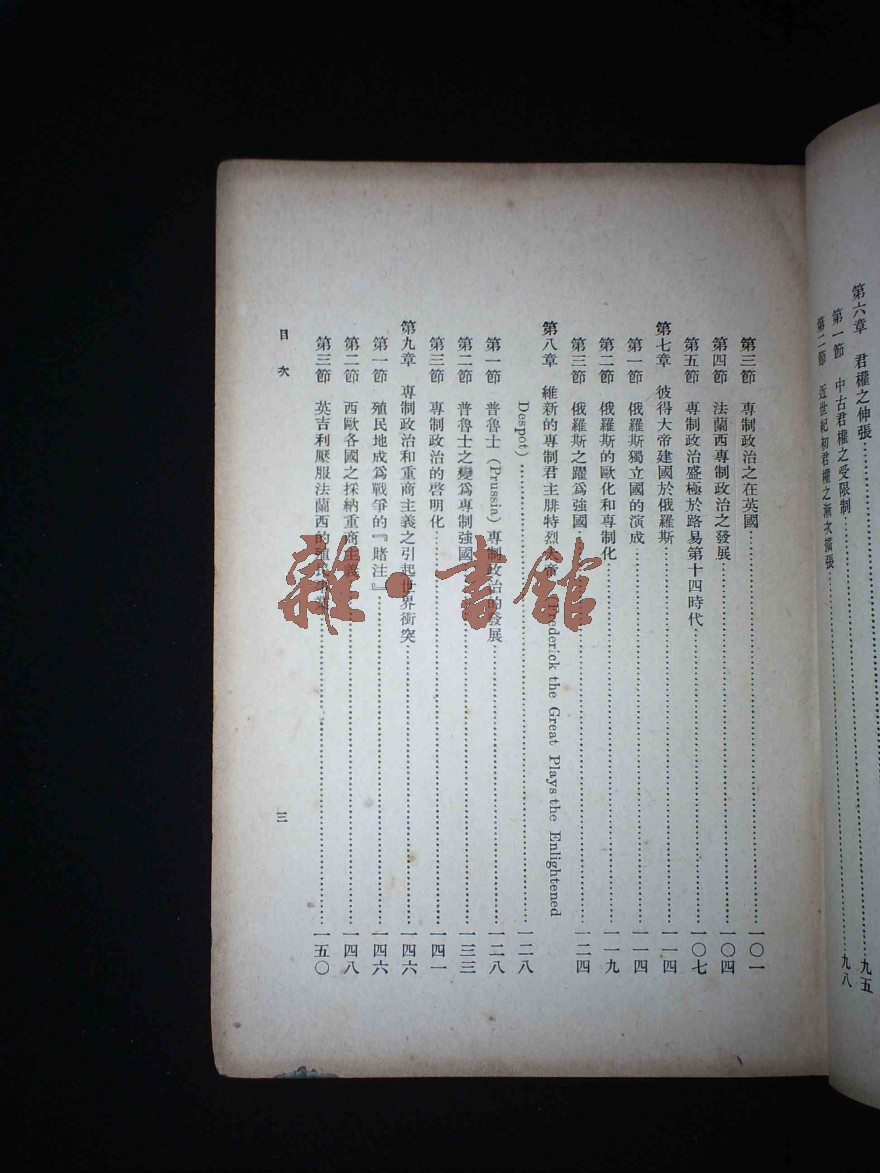 第六章 君權之伸張……九五
第一節 中古君權之受限制
第二節 近世紀初君權之漸次擴張……九八
第三節 專制政治之在英國……一〇一
第四節 法蘭西專制政治之發展……一〇四
第五節 專制政治盛極於路易第十四時代……一〇七
第七章 彼得大帝建國於俄羅斯……一一四
第一節 俄羅斯獨立國的演成……一一四
第二節 俄羅斯的歐化和專制化……一一九
第三節 俄羅斯之躍爲強國……一二四
第八章 維新的專制君主腓特烈大帝 Frederick the Great Plays the Enlightened
Despot)……一二八
第一節 普魯士(Prussia)專制政治的發展……一二八
第二節 普魯士之變爲專制強國……一三三
第三節 專制政治的啓明化……一四一
第九章 專制政治和重商主義之引起世界衝突……一四六
第一節 殖民地成爲戰爭的『賭注』……一四六
第二節 西歐各國之採納重商主義……一四八
第三節 英吉利壓服法蘭西的殖民……一五〇
目次
三
雜·書館